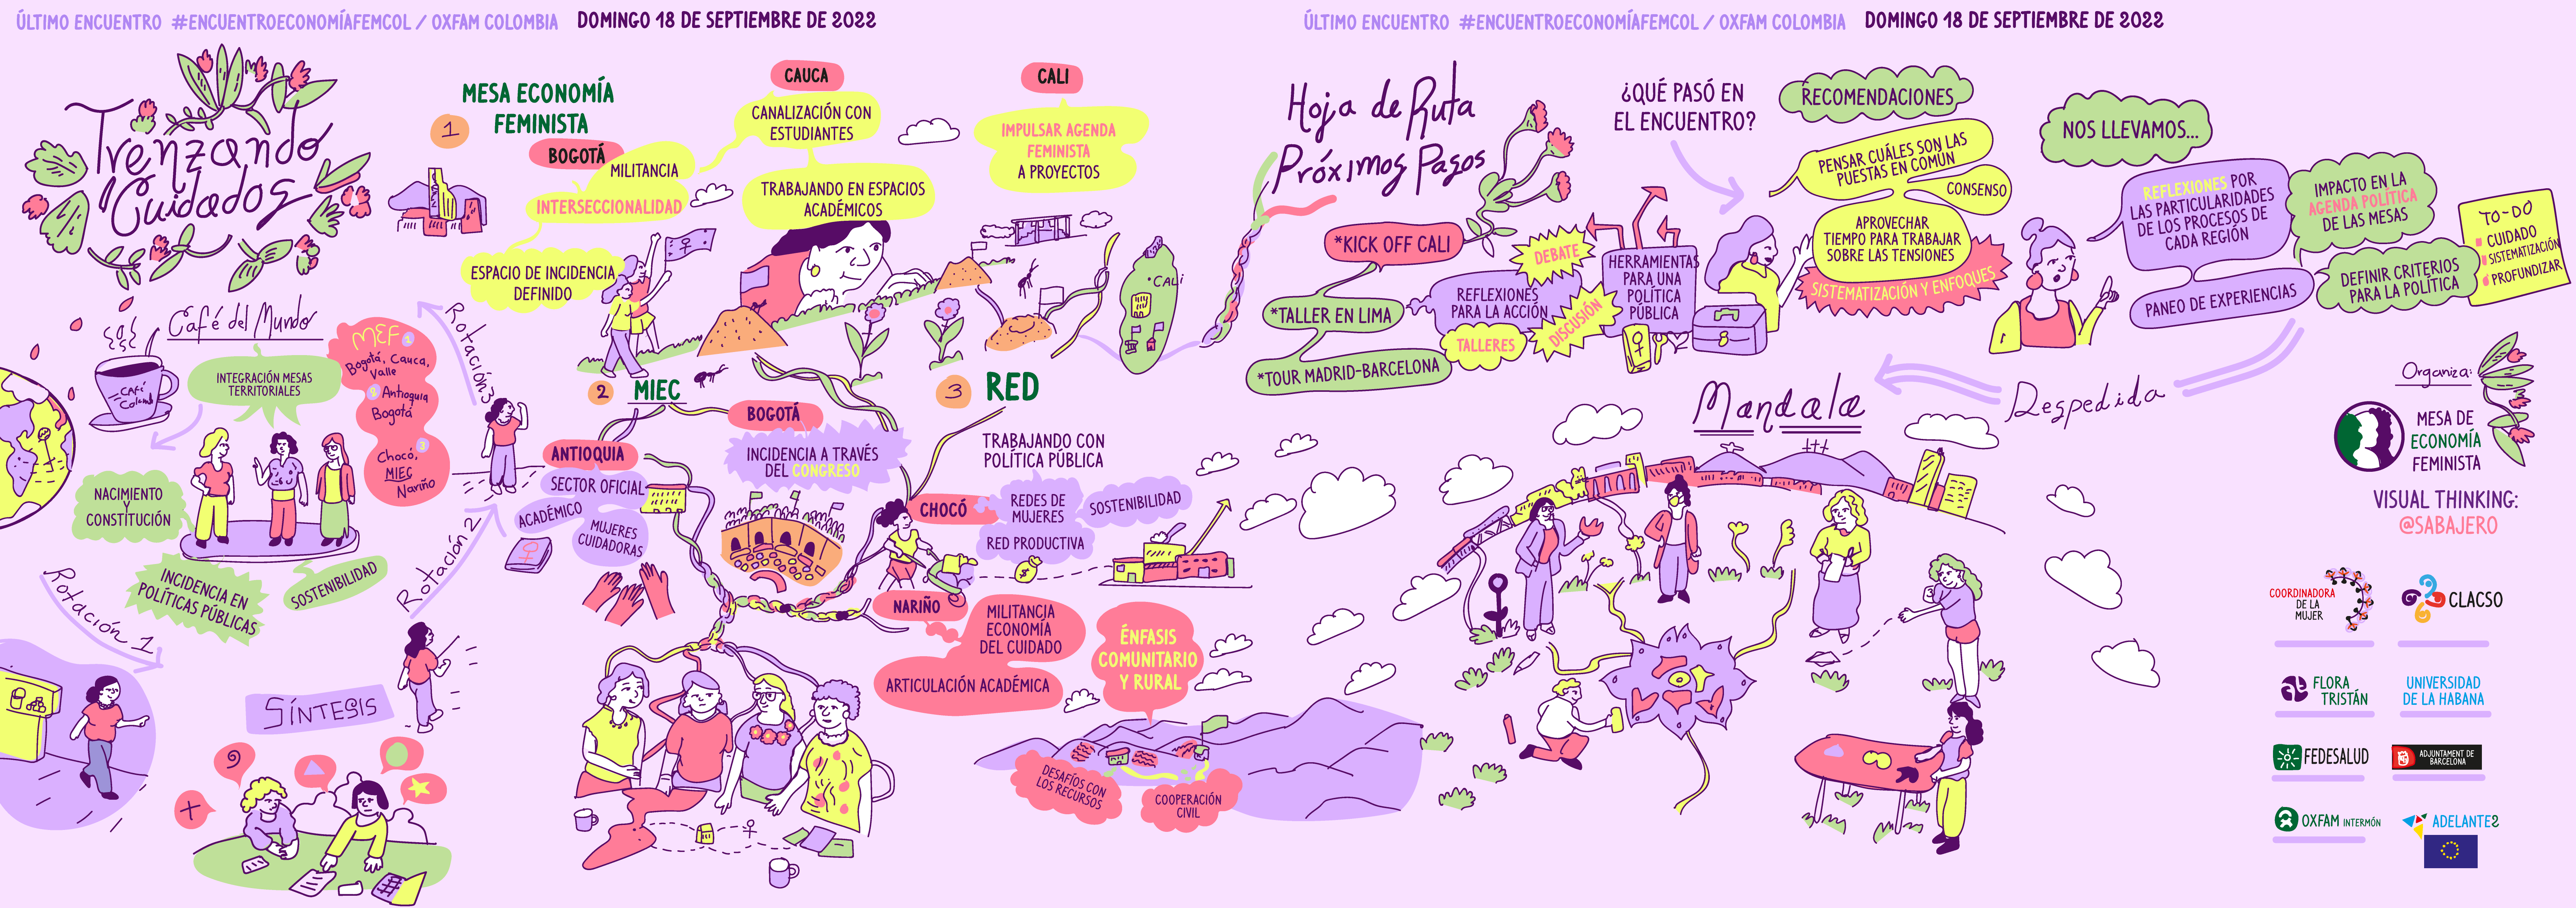 ÚLTIMO ENCUENTRO #ENCUENTROECONOMÍAFEMCOL / OXFAM COLOMBIA DOMINGO 18 DE SEPTIEMBRE DE 2022
Trenzando
Cuidados
Café del Mundo
CAFÉ
INTEGRACIÓN MESAS
TERRITORIALES
MEF 1
Bogotá, Cauca,
Valle
2 Antioquia
Bogotá
3
Chocó,
MIEC
Nariño
NACIMIENTO
Y
CONSTITUCIÓN
INCIDENCIA EN
POLÍTICAS PÚBLICAS
SOSTENIBILIDAD
Rotación 1
Rotación 2
Rotación 3
SÍNTESIS
1
MESA ECONOMÍA
FEMINISTA
BOGOTÁ
MILITANCIA
INTERSECCIONALIDAD
ESPACIO DE INCIDENCIA
DEFINIDO
CAUCA
CANALIZACIÓN CON
ESTUDIANTES
TRABAJANDO EN ESPACIOS
ACADÉMICOS
CALI
IMPULSAR AGENDA
FEMINISTA
A PROYECTOS
CALI
2 MIEC
ANTIOQUIA
SECTOR OFICIAL
ACADÉMICO
MUJERES
CUIDADORAS
BOGOTÁ
INCIDENCIA A TRAVÉS
DEL CONGRESO
3 RED
TRABAJANDO CON
POLÍTICA PÚBLICA
CHOCÓ
REDES DE
MUJERES
SOSTENIBILIDAD
RED PRODUCTIVA
$
NARIÑO
MILITANCIA
ECONOMÍA
DEL CUIDADO
ARTICULACIÓN ACADÉMICA
ÉNFASIS
COMUNITARIO
Y RURAL
DESAFÍOS CON
LOS RECURSOS
COOPERACIÓN
CIVIL
ÚLTIMO ENCUENTRO #ENCUENTROECONOMÍAFEMCOL / OXFAM COLOMBIA DOMINGO 18 DE SEPTIEMBRE DE 2022
Hoja de Ruta
Próximos Pasos
*KICK OFF CALI
*TALLER EN LIMA
*TOUR MADRID-BARCELONA
REFLEXIONES
PARA LA ACCIÓN
DEBATE
TALLERES
DISCUSIÓN
HERRAMIENTAS
PARA UNA
POLÍTICA
PÚBLICA
¿QUÉ PASÓ EN
EL ENCUENTRO?
RECOMENDACIONES
PENSAR CUÁLES SON LAS
PUESTAS EN COMÚN
CONSENSO
APROVECHAR
TIEMPO PARA TRABAJAR
SOBRE LAS TENSIONES
SISTEMATIZACIÓN Y ENFOQUES
NOS LLEVAMOS...
REFLEXIONES POR
LAS PARTICULARIDADES
DE LOS PROCESOS DE
CADA REGIÓN
PANEO DE EXPERIENCIAS
IMPACTO EN LA
AGENDA POLÍTICA
DE LAS MESAS
DEFINIR CRITERIOS
PARA LA POLÍTICA
TO-DO
CUIDADO
SISTEMATIZACIÓN
PROFUNDIZAR
Despedida
Mandala
Organiza:
MESA DE
ECONOMÍA
FEMINISTA
VISUAL THINKING:
@SABAJERO
COORDINADORA
DE LA
MUJER
CLACSO
FLORA
TRISTÁN
UNIVERSIDAD
DE LA HABANA
FEDESALUD
ADJUNTAMENT DE
BARCELONA
OXFAM INTERMÓN
ADELANTE2